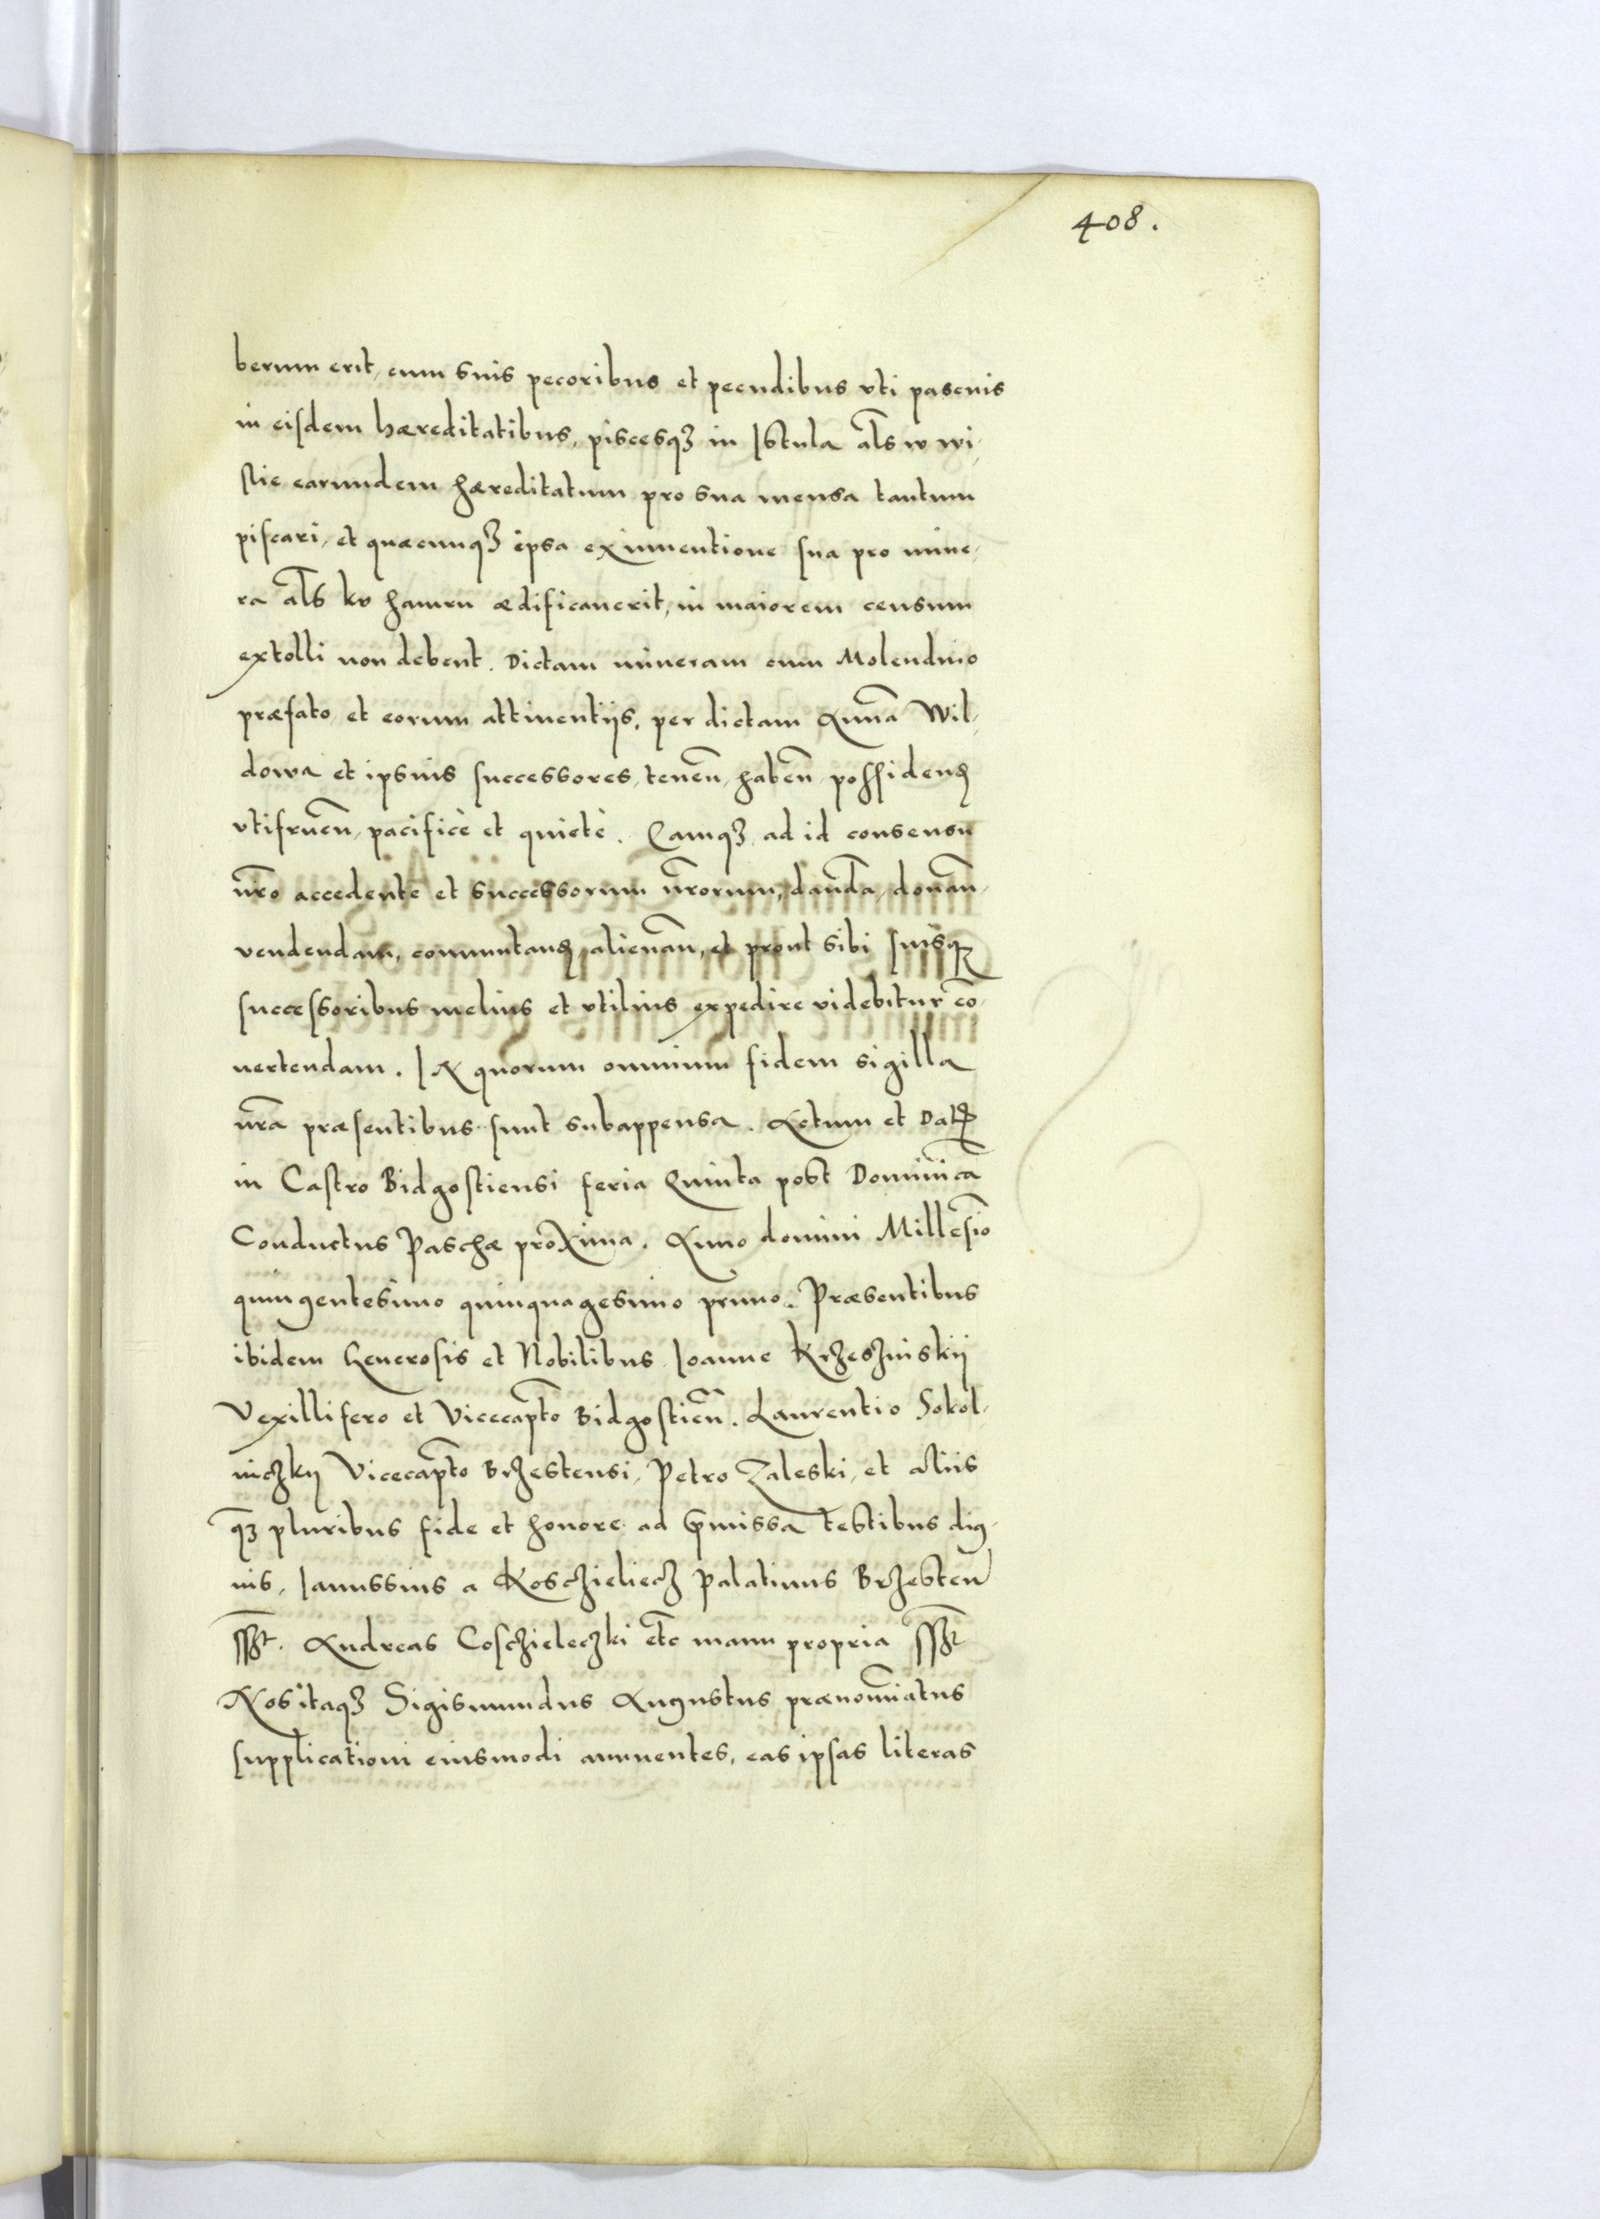 408.
berum erit, cum suis pecoribus et pecudibus vti pascuis
in eisdem hæreditatibus, piscesqꝫ in Istula al̄s w wi,
slie earundem hæreditatum pro sua mensa tantum
piscari, et quæcunqꝫ ipsa ex inuentione sua pro mine,
ra al̄s kv hamru ædificauerit, in maiorem censum
extolli non debent. Dictam mineram cum Molendino
præfato et eorum attinentijs, per dictam Annā Wil,
dowa et ipsius successores, tenen̄, haben̄, possidenꝭ
vtifruen̄, pacificè et quietè. Eamqꝫ ad id consensu
nr̄o accedente et successorum nr̄orum, dand̄a, donan̄,
vendendam, commutanꝭ, alienan̄, et prout sibi suisqꝫ
successoribus melius et vtilius expedire videbitur cō,
uertendam. IN quorum omnium fidem sigilla
nr̄a præsentibus sunt subappensa. Actum et Datꝭ
in Castro Bidgostiensi feria Quinta post Dominicā
Conductus Paschæ proxima. Anno domini Millesīo
quingentesimo quinquagesimo primo. Præsentibus
ibidem Generosis et Nobilibus Ioanne Krzeszinskij
Vexillifero et Vicecap̄to Bidgostien̄. Laurentio Sokol,
niczkij Vicecap̄to Brzestensi, Petro Zaleski, et aliis
qꝫ pluribus fide et honore ad p̄missa testibus dig,
nis, Ianussius a Kosczieliecz Palatinus Brzesten̄
ssꝫt. Andreas Cosczieleczki et̄c manu propria ssꝫt
Nos itaqꝫ Sigismundus Augustus prænomīatus
supplicationi eiusmodi annuentes, eas ipsas literas